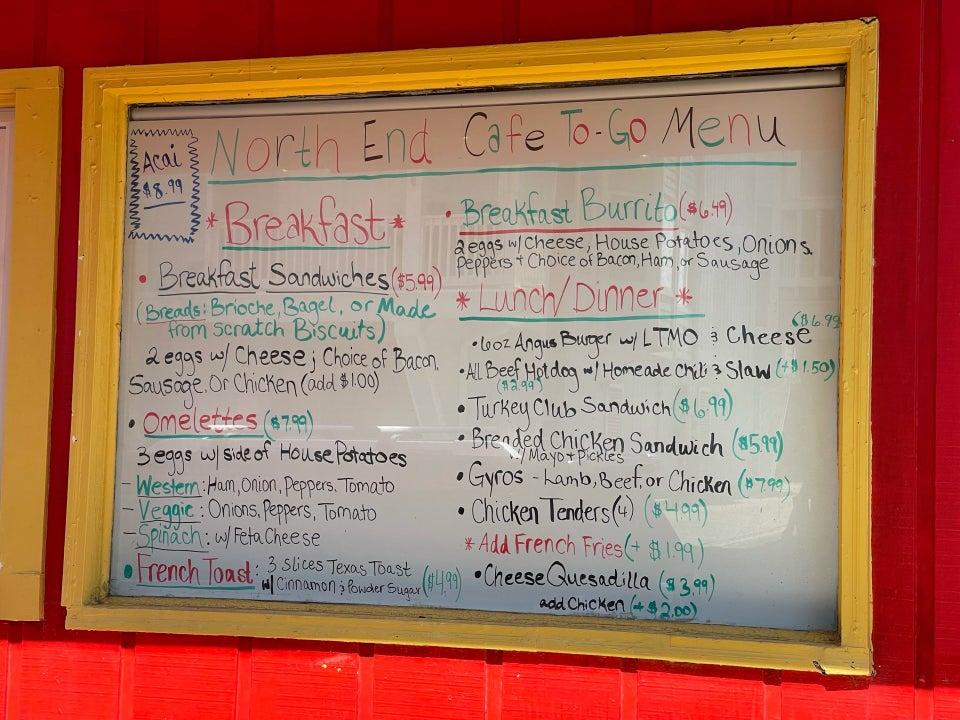 Acai
$8.99
North End Cafe To-Go Menu
* Breakfast *
• Breakfast Sandwiches ($5.99)
(Breads: Brioche, Bagel, or Made
from scratch Biscuits)
2 eggs w/ Cheese; Choice of Bacon,
Sausage, Or Chicken (add $1.00)
• Omelettes ($7.99)
3 eggs w/ side of House Potatoes
- Western: Ham, Onion, Peppers, Tomato
- Veggie: Onions, Peppers, Tomato
- Spinach: w/ Feta Cheese
• French Toast: 3 slices Texas Toast
w/ Cinnamon & Powder Sugar ($4.99)
• Breakfast Burrito ($6.49)
2 eggs w/ Cheese, House Potatoes, Onions,
Peppers + Choice of Bacon, Ham, or Sausage
* Lunch/Dinner *
($6.99
• 6oz Angus Burger w/ LTMO & Cheese
• All Beef Hotdog w/ Homeade Chili & Slaw (+$1.50)
($2.99)
• Turkey Club Sandwich ($6.99)
• Breaded Chicken Sandwich ($5.99)
w/ Mayo + Pickles
• Gyros - Lamb, Beef, or Chicken ($7.99)
• Chicken Tenders (4) ($4.99)
* Add French Fries (+ $1.99)
• Cheese Quesadilla ($3.99)
add Chicken (+$2.00)